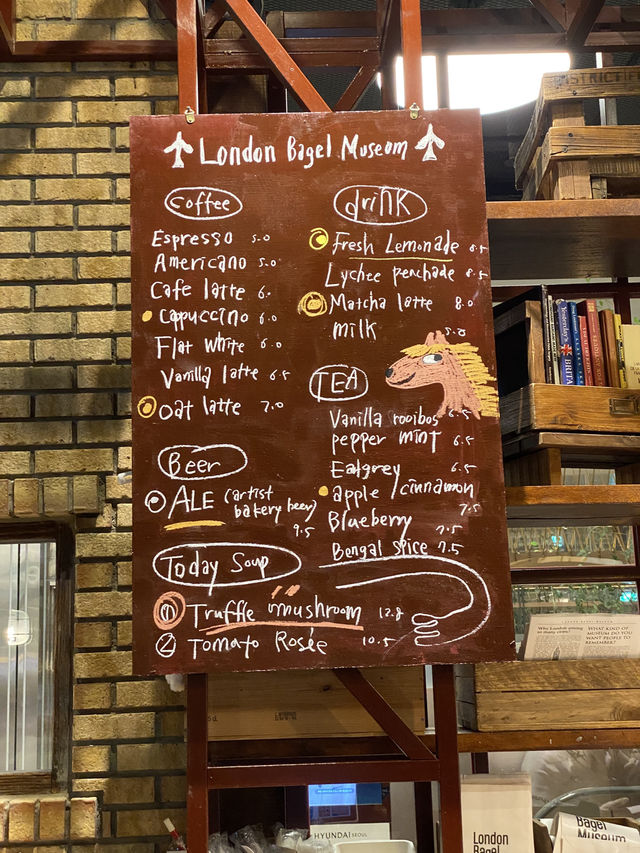 London Bagel Museum
Coffee
Espresso 5.0
Americano 5.0
Cafe latte 6.
Cappuccino 6.0
Flat white 6.0
Vanilla latte 6.5
Oat latte 7.0
Beer
ALE (artist
bakery beer)
9.5
drink
Fresh Lemonade 8.5
Lychee peachade 8.5
Matcha latte 8.0
milk 5.0
TEA
Vanilla rooibos 6.5
pepper mint 6.5
Ealgrey 6.5
apple / cinnamon
7.5
Blueberry 7.5
Bengal spice 7.5
Today Soup
① Truffle mushroom 12.8
② Tomato Rosée 10.5
HYUNDAI SEOUL
London
Bagel
Bagel
Museum
WHAT KIND OF
MUSEUM DO YOU
WANT PEOPLE TO
REMEMBER?